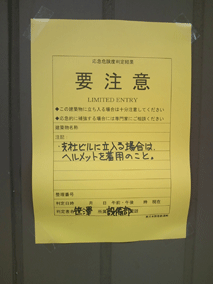 応急危険度判定結果
要注意
LIMITED ENTRY
◆この建築物に立ち入る場合は十分注意してください
◆応急的に補強する場合には専門家にご相談ください
建築物名称
注記:
支社ビルに立入る場合は、
ヘルメットを着用のこと。
整理番号
判定日時 月 日 午前・午後 時 現在